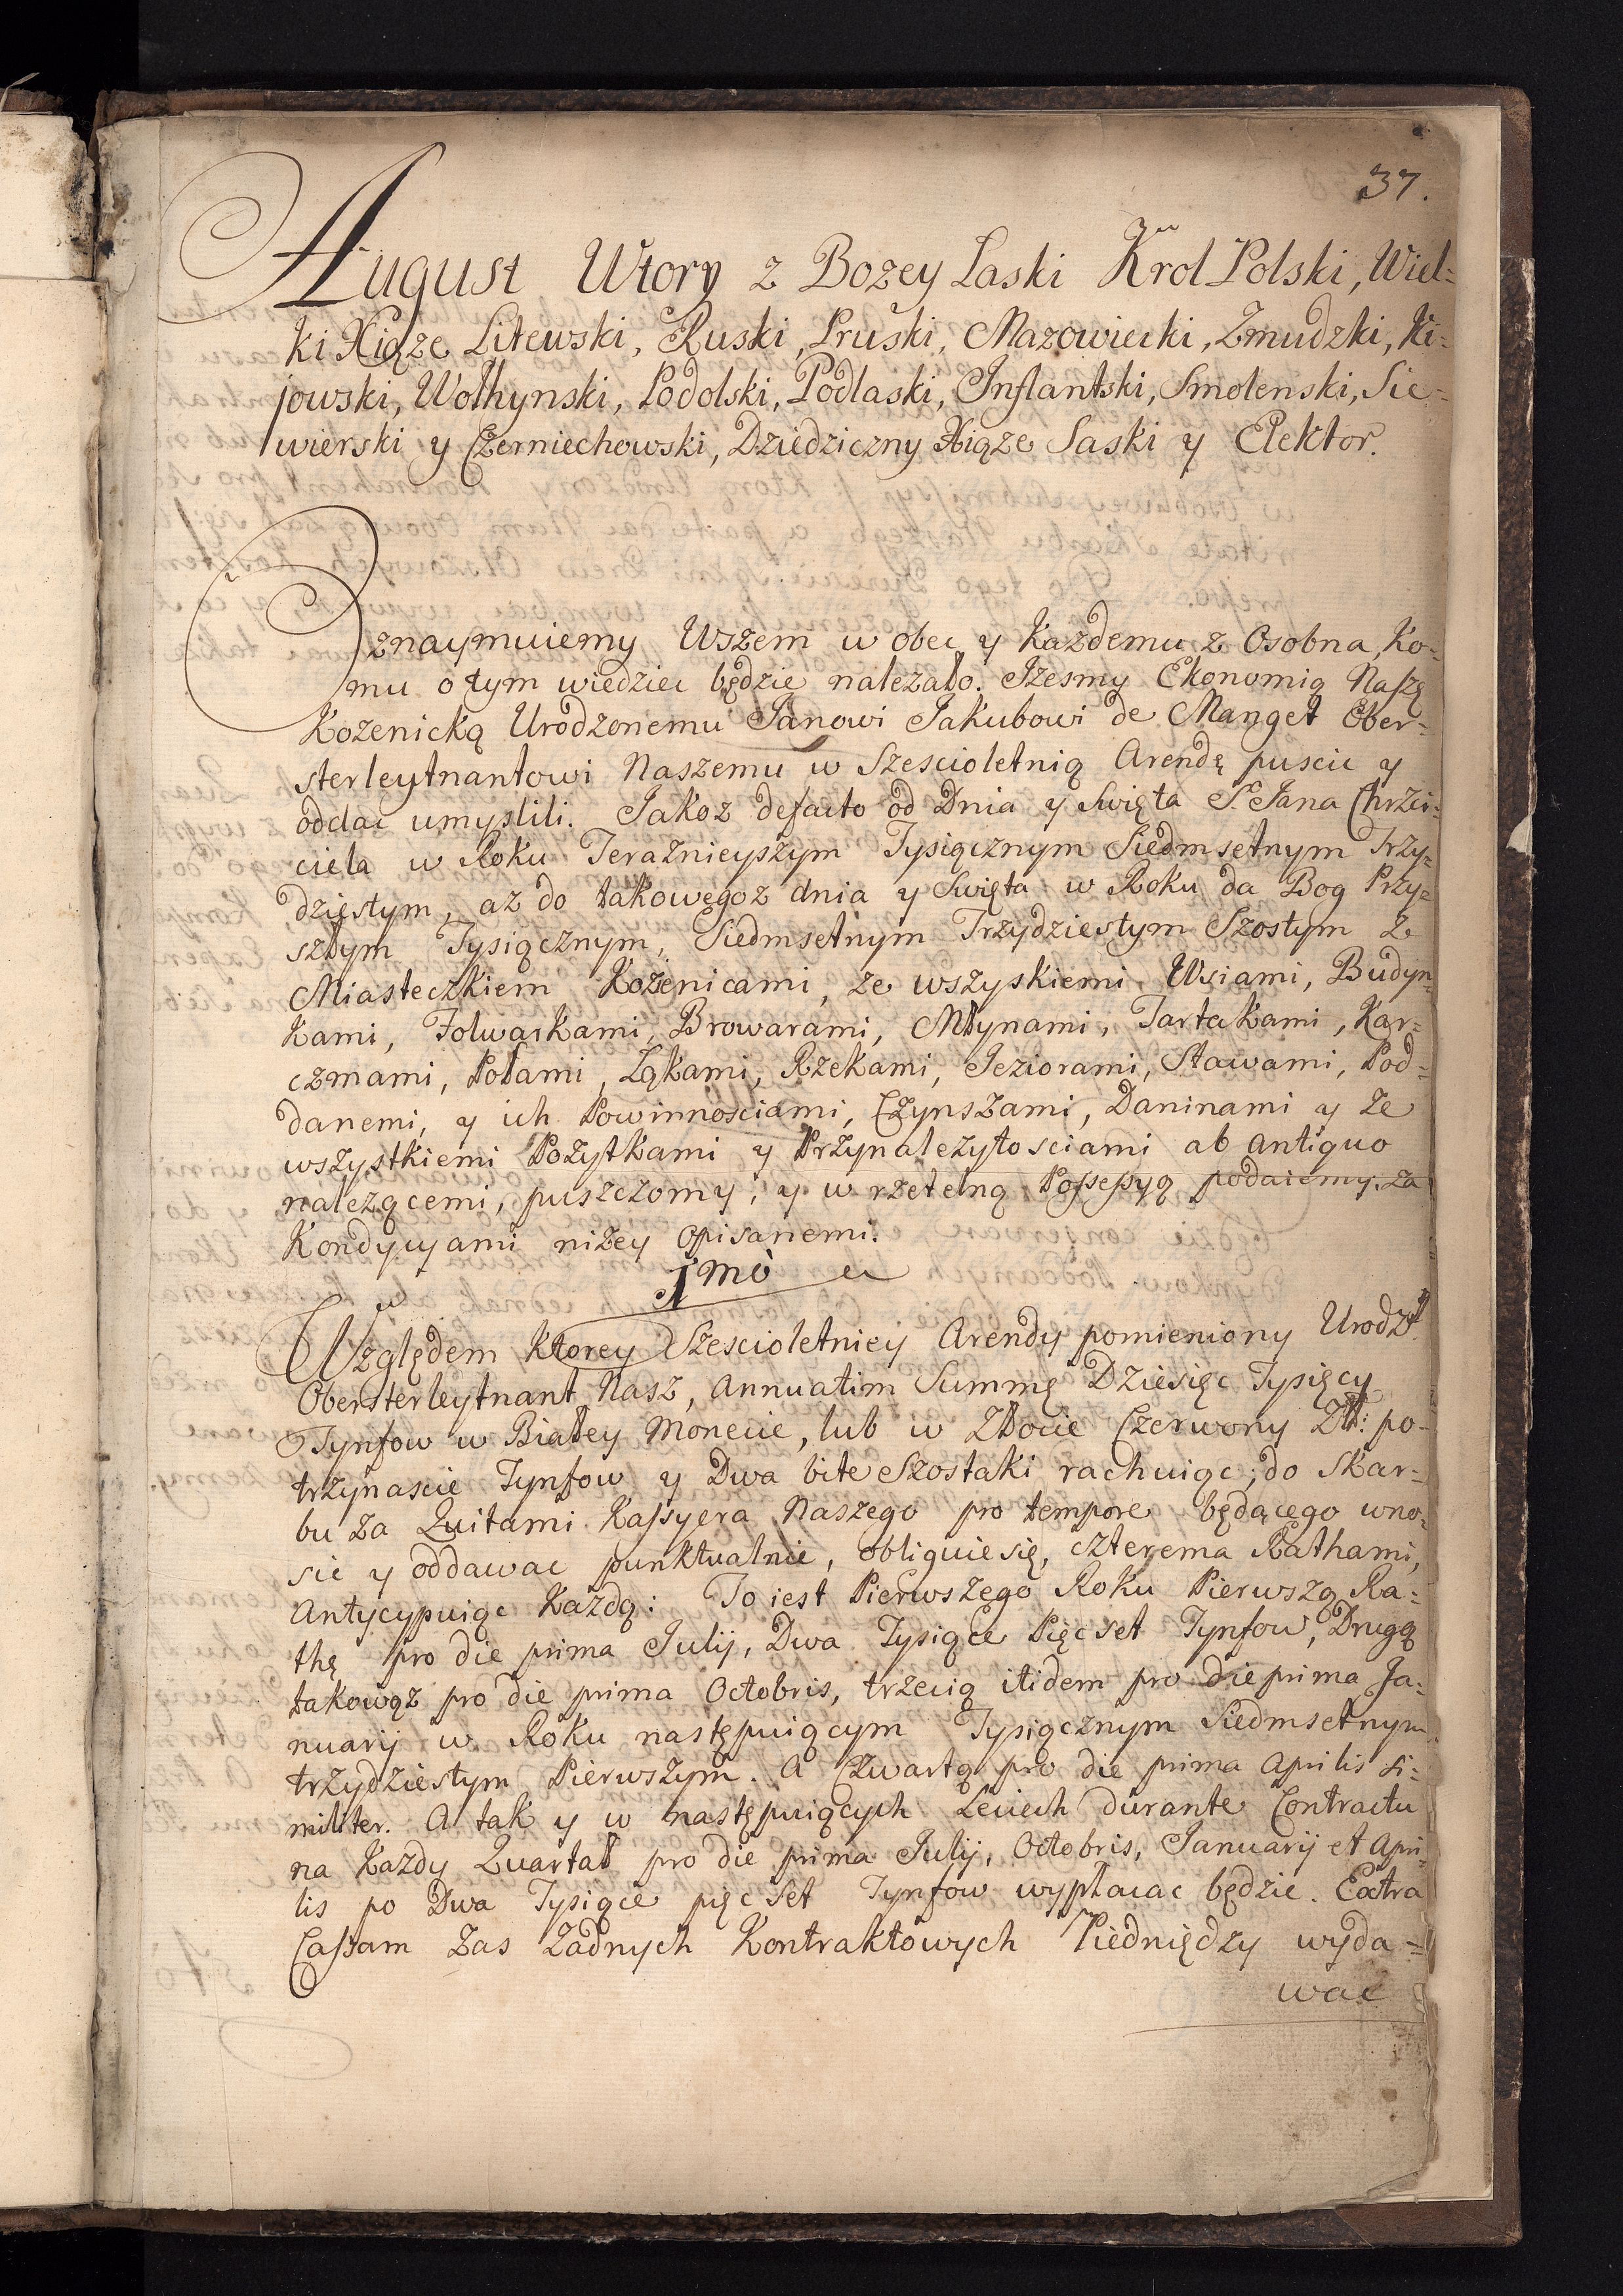 37.
August Wtory z Bozey Laski Krol Polski, Wiel=
ki Xiąze Litewski, Ruski, Pruski, Mazowiecki, Zmudzki, Ki=
jowski, Wołhynski, Podolski, Podlaski, Inflantski, Smolenski, Sie=
wierski y Czerniechowski, Dziedziczny Xiąze Saski y Elektor.
Oznaymuiemy Wszem w obec y Kazdemu z Osobna, Ko=
mu o tym wiedziec będzie nalezało. Izesmy Ekonomią Naszę
Kozenicką Urodzonemu Janowi Jakubowi de Manget Ober=
sterleytnantowi Naszemu w Szescioletnią Arendę puscic y
oddac umyslili. Jakoz defacto od Dnia y Swięta S. Jana Chrzci=
ciela w Roku Teraznieyszym Tysiącznym Siedmsetnym Trzy=
dziestym, az do takowegoz dnia y Swięta w Roku da Bog Przy=
szłym Tysiącznym, Siedmsetnym Trzydziestym Szostym Z
Miasteczkiem Kozenicami, ze wszyskiemi Wsiami, Budyn=
kami, Folwarkami, Browarami, Młynami, Tartakami, Kar=
czmami, Polami, Ląkami, Rzekami, Jeziorami, Stawami, Pod=
danemi, y ich Powinnosciami, Czynszami, Daninami y ze
wszystkiemi Pozytkami y Przynalezytosciami ab antiquo
nalezącemi, puszczomy, y w rzetelną Possessyą podaiemy. za
Kondycyami nizey opisanemi.
1mo
Względem ktorey Szescioletniey Arendy pomieniony Urodz:
Obersterleytnant Nasz, annuatim Summę Dziesięc Tysięcy
Tynfow w Białey Monecie, lub w Złocie Czerwony Zł: po=
trzynascie Tynfow y Dwa bite Szostaki rachuiąc, do Skar=
bu za Quitami Kassyera Naszego pro tempore będącego wno=
sic y oddawac punktualnie, obliguie się, czterema Rathami,
Antycypuiąc Kazdą: To iest Pierwszego Roku Pierwszą Ra=
thę pro die prima Julij, Dwa Tysiące Pięcset Tynfow, Drugą
takowąz pro die prima Octobris, trzecią itidem pro die prima Ja=
nuarij w Roku następuiącym Tysiącznym Siedmsetnym
trzydziestym Pierwszym. A Czwartą pro die prima Aprilis si=
militer. A tak y w następuiących Leciech durante Contractu
na Kazdy Quartał pro die prima Julij, Octobris, Januarij et Apri=
lis po Dwa Tysiące pięc set Tynfow wypłacac będzie. Extra
Cassam zas Zadnych Kontraktowych Piedniędzy wyda=
wac